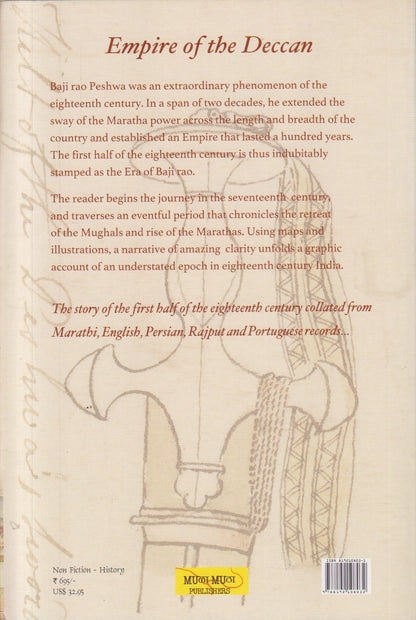 Empire of the Deccan
Baji rao Peshwa was an extraordinary phenomenon of the
eighteenth century. In a span of two decades, he extended the
sway of the Maratha power across the length and breadth of the
country and established an Empire that lasted a hundred years.
The first half of the eighteenth century is thus indubitably
stamped as the Era of Baji rao.
The reader begins the journey in the seventeenth century,
and traverses an eventful period that chronicles the retreat
of the Mughals and rise of the Marathas. Using maps and
illustrations, a narrative of amazing clarity unfolds a graphic
account of an understated epoch in eighteenth century India.
The story of the first half of the eighteenth century collated from
Marathi, English, Persian, Rajput and Portuguese records...
Non Fiction - History
₹ 695/-
US$ 32.95
PUBLISHERS